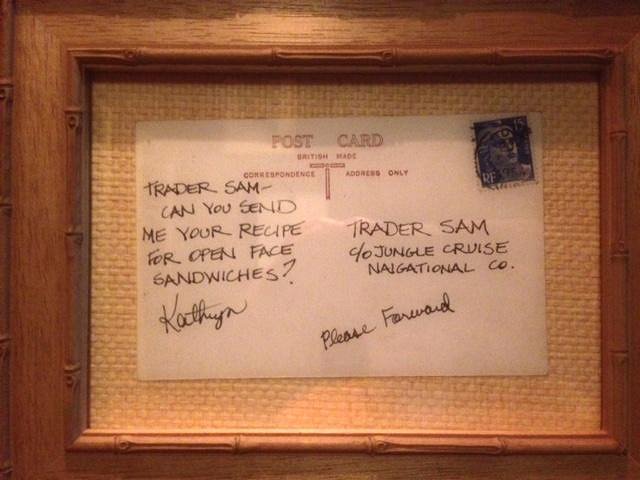 POST CARD
BRITISH MADE
CORRESPONDENCE
ADDRESS ONLY
TRADER SAM-
CAN YOU SEND
ME YOUR RECIPE
FOR OPEN FACE
SANDWICHES?
Kathryn
TRADER SAM
c/o JUNGLE CRUISE
NAIGATIONAL CO.
Please Forward
15
RF